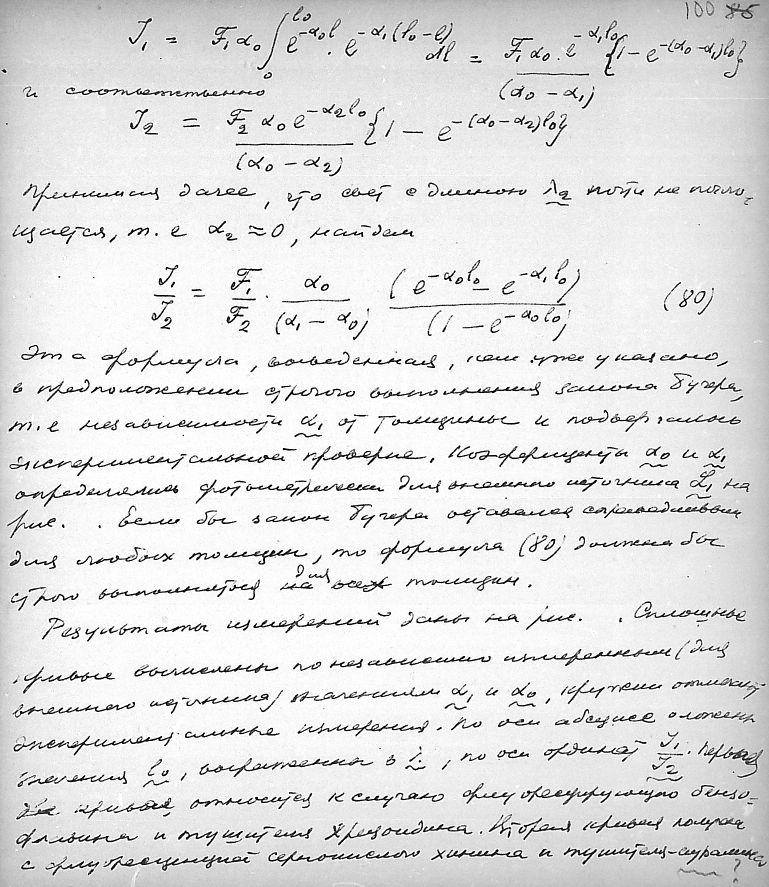 100 86
J₁ = F₁α₀ ∫₀^l₀ e^-α₀l · e^-α₁(l₀-l) dl = F₁α₀·e^-α₁l₀ / (α₀-α₁) {1-e^-(α₀-α₁)l₀}
и соответственно
J₂ = F₂α₀e^-α₂l₀ / (α₀-α₂) {1-e^-(α₀-α₂)l₀}
Принимая далее, что свет с длиною λ₂ почти не погло-
щается, т.е α₂≈0, найдем
J₁/J₂ = F₁/F₂ · α₀/(α₁-α₀) (e^-α₀l₀ - e^-α₁l₀)/(1-e^-α₀l₀) (80)
Эта формула, выведенная, как уже указано,
в предположении строгого выполнения закона Бугера,
т.е независимости α₁ от толщины и подвергалась
экспериментальной проверке. Коэффициенты α₀ и α₁
определялись фотометрически для внешнего источника L₁ на
рис. . Если бы закон Бугера оставался справедливым
для любых толщин, то формула (80) должна бы
строго выполняться для толщин.
Результаты измерений даны на рис. . Сплошные
кривые вычислены по независимо измеренным (для
внешнего источника) значениям α₁ и α₀, кружки отмечают
экспериментальные измерения. По оси абсцисс отложены
значения l₀, выраженные в , по оси ординат J₁/J₂. Первая
кривая относится к случаю флуоресцирующего бензо-
флавина и тушителя Хризоидина. Вторая кривая получена
с флуоресценцией сернокислого хинина и тушителя-аурамина
?